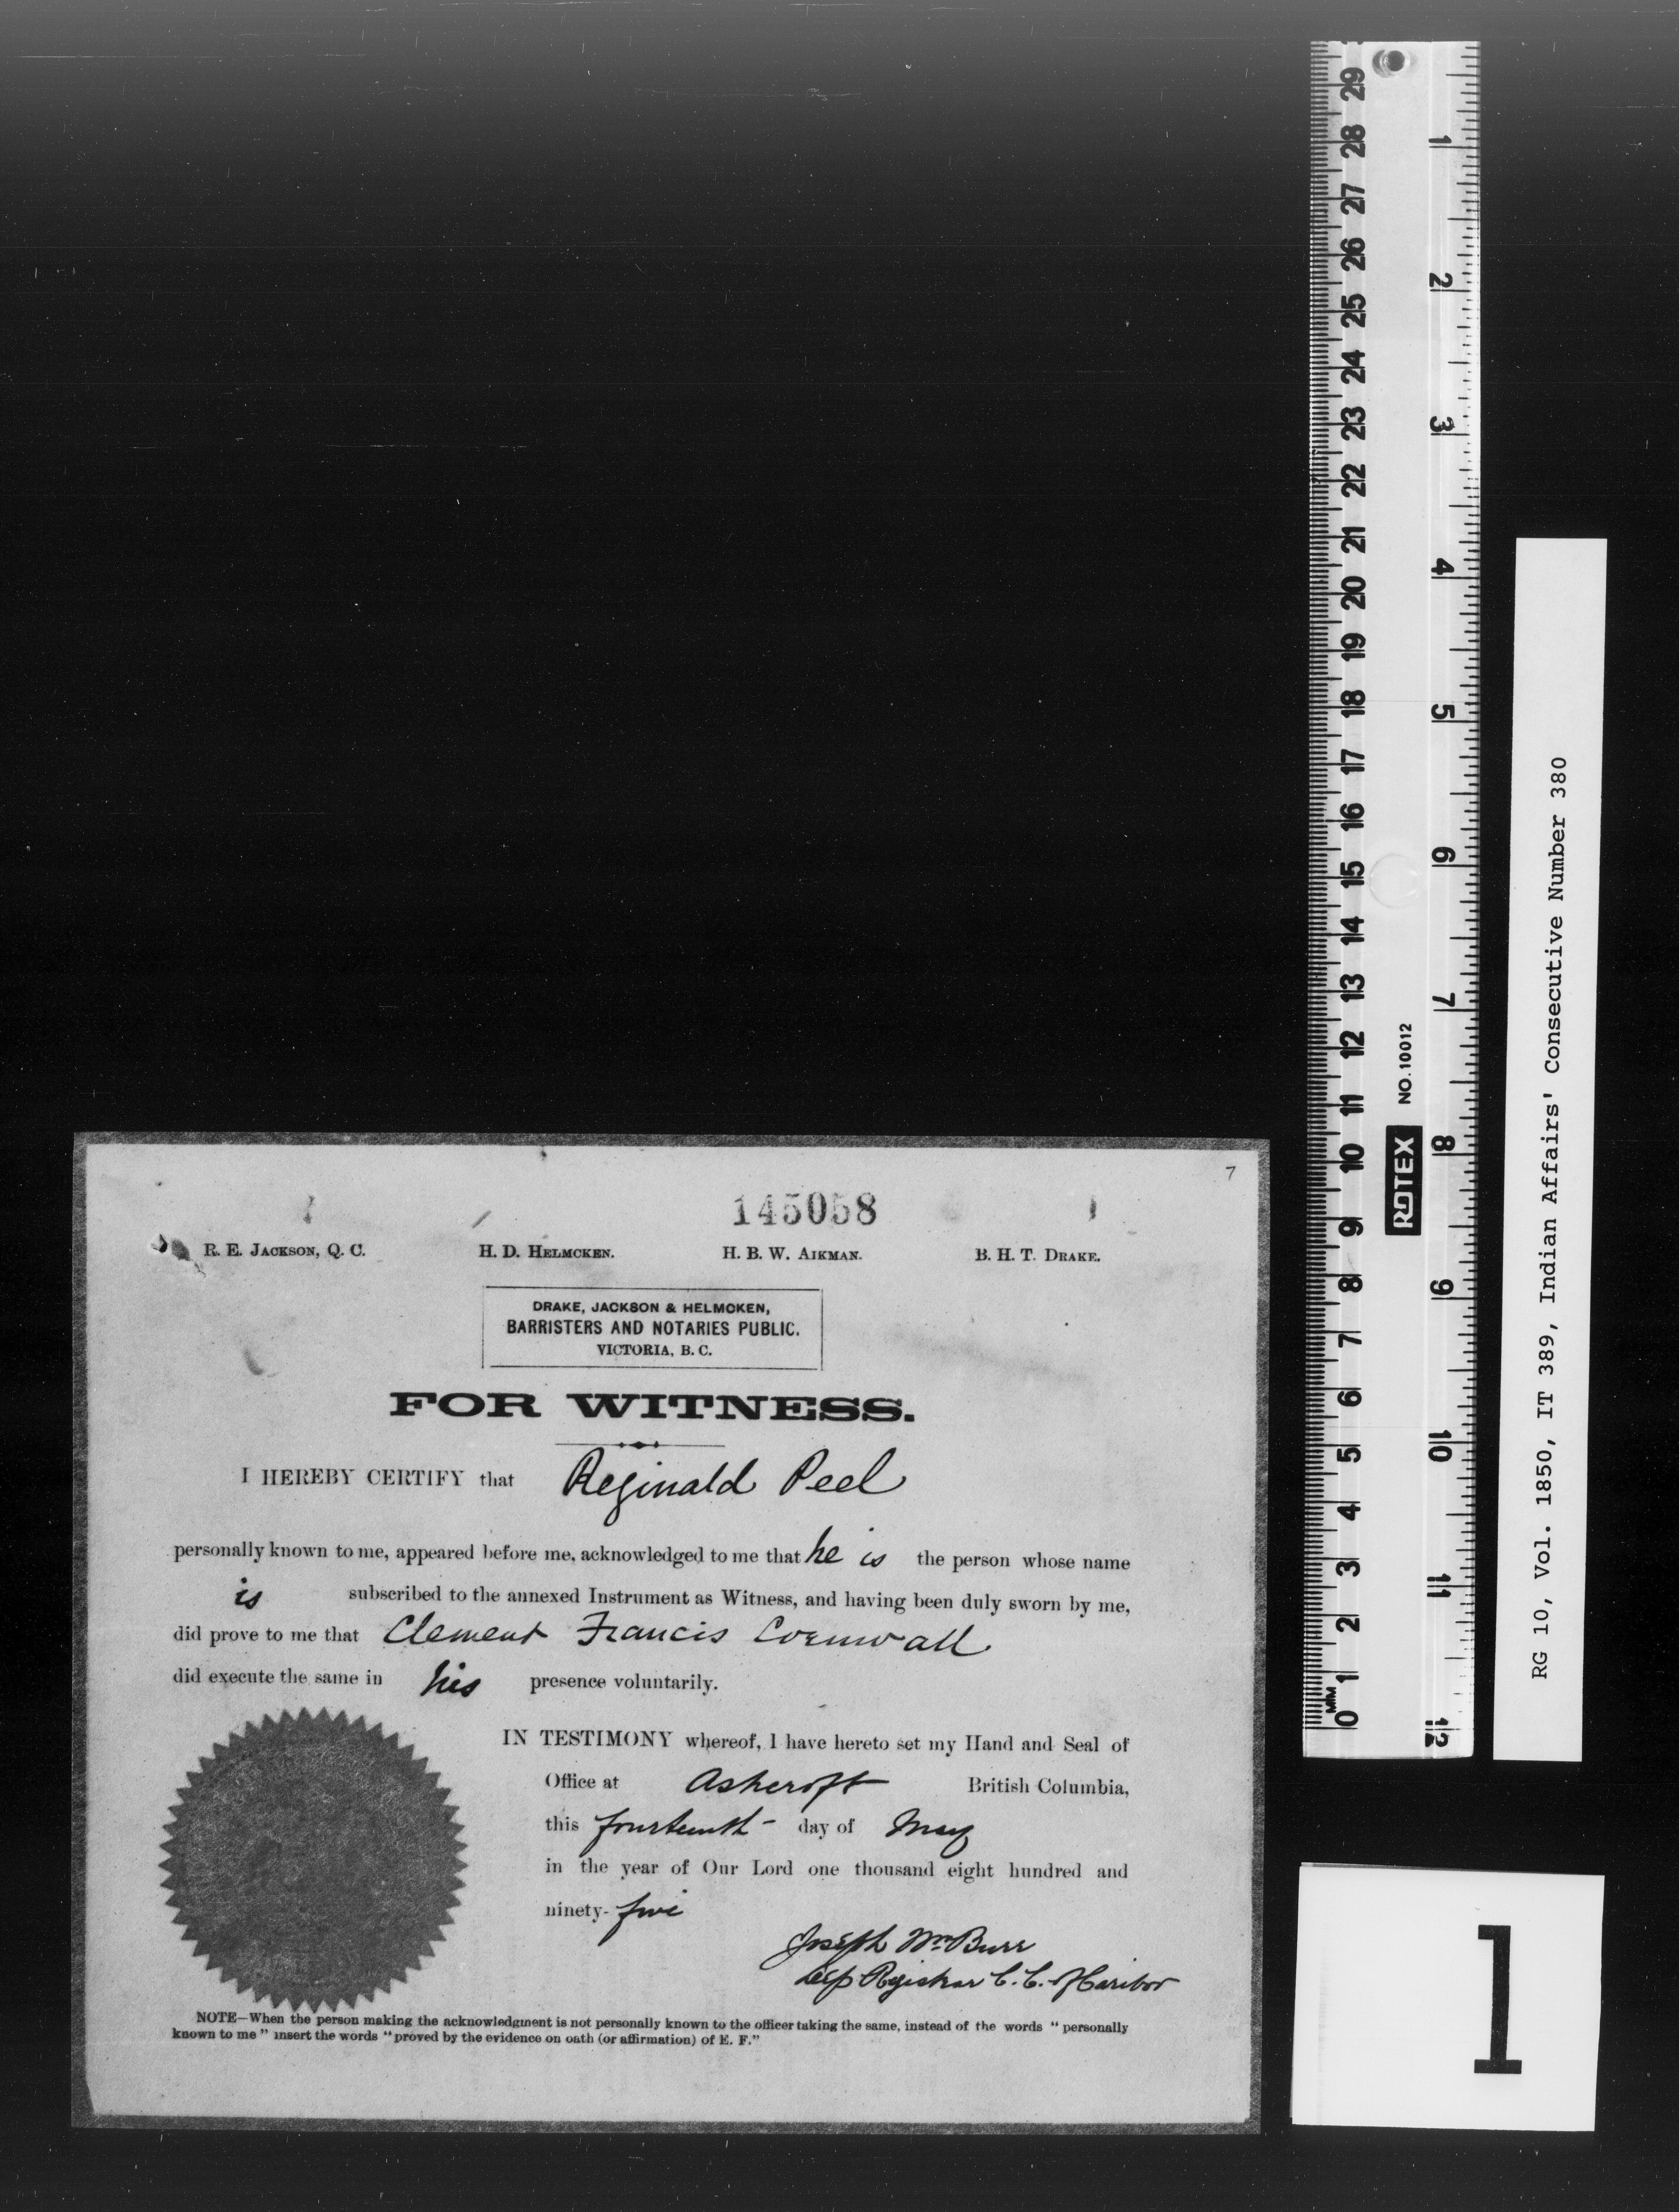 7
145058
R. E. JACKSON, Q. C. H. D. HELMCKEN. H. B. W. AIKMAN. B. H. T. DRAKE.
DRAKE, JACKSON & HELMCKEN,
BARRISTERS AND NOTARIES PUBLIC.
VICTORIA, B. C.
FOR WITNESS.
I HEREBY CERTIFY that Reginald Peel
personally known to me, appeared before me, acknowledged to me that he is the person whose name
is subscribed to the annexed Instrument as Witness, and having been duly sworn by me,
did prove to me that Clement Francis Cornwall
did execute the same in his presence voluntarily.
IN TESTIMONY whereof, I have hereto set my Hand and Seal of
Office at Ashcroft British Columbia,
this fourteenth day of May
in the year of Our Lord one thousand eight hundred and
ninety-five
Joseph Wm Burr
Dep Registrar C. C. of Cariboo
NOTE—When the person making the acknowledgment is not personally known to the officer taking the same, instead of the words "personally
known to me" insert the words "proved by the evidence on oath (or affirmation) of E. F."
29 28 27 26 25 24 23 22 21 20 19 18 17 16 15 14 13 12 11 10 9 8 7 6 5 4 3 2 1 0
MM
ROTEX NO. 10012
1 2 3 4 5 6 7 8 9 10 11 12
RG 10, Vol. 1850, IT 389, Indian Affairs' Consecutive Number 380
1